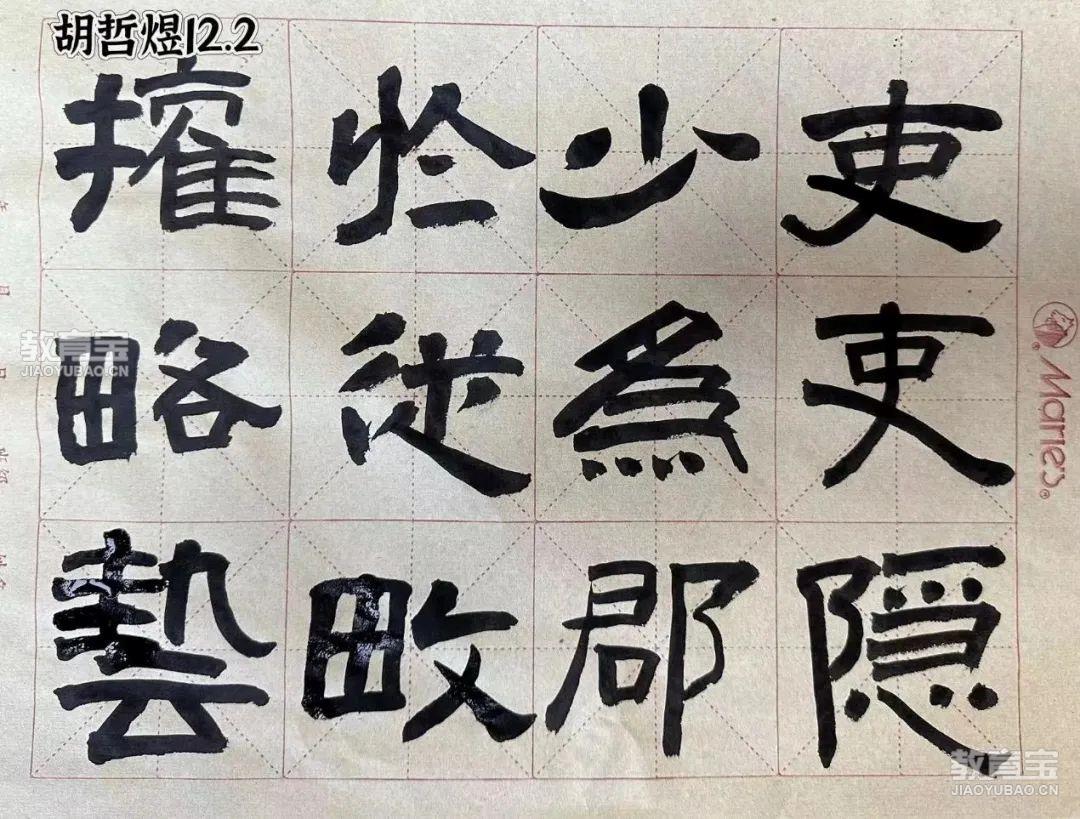 胡哲煜12.2
搉略藝
於從畋
少為郡
吏吏隐
Marie's
教育宝
JIAOYUBAO.CN
教育宝
JIAOYUBAO.CN